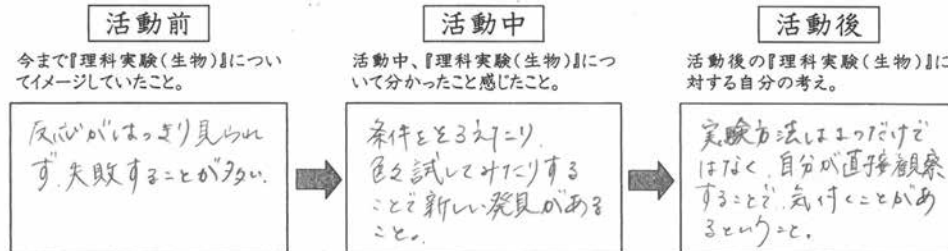 活動前
今まで『理科実験(生物)』につい
てイメージしていたこと。
反応がはっきり見られ
ず、失敗することが多い。
活動中
活動中、『理科実験(生物)』につ
いて分かったこと感じたこと。
条件をそろえたり、
色々試してみたりする
ことで新しい発見がある
こと。
活動後
活動後の『理科実験(生物)』に
対する自分の考え。
実験方法は1つだけで
はなく、自分が直接観察
することで、気付くことがあ
るということ。